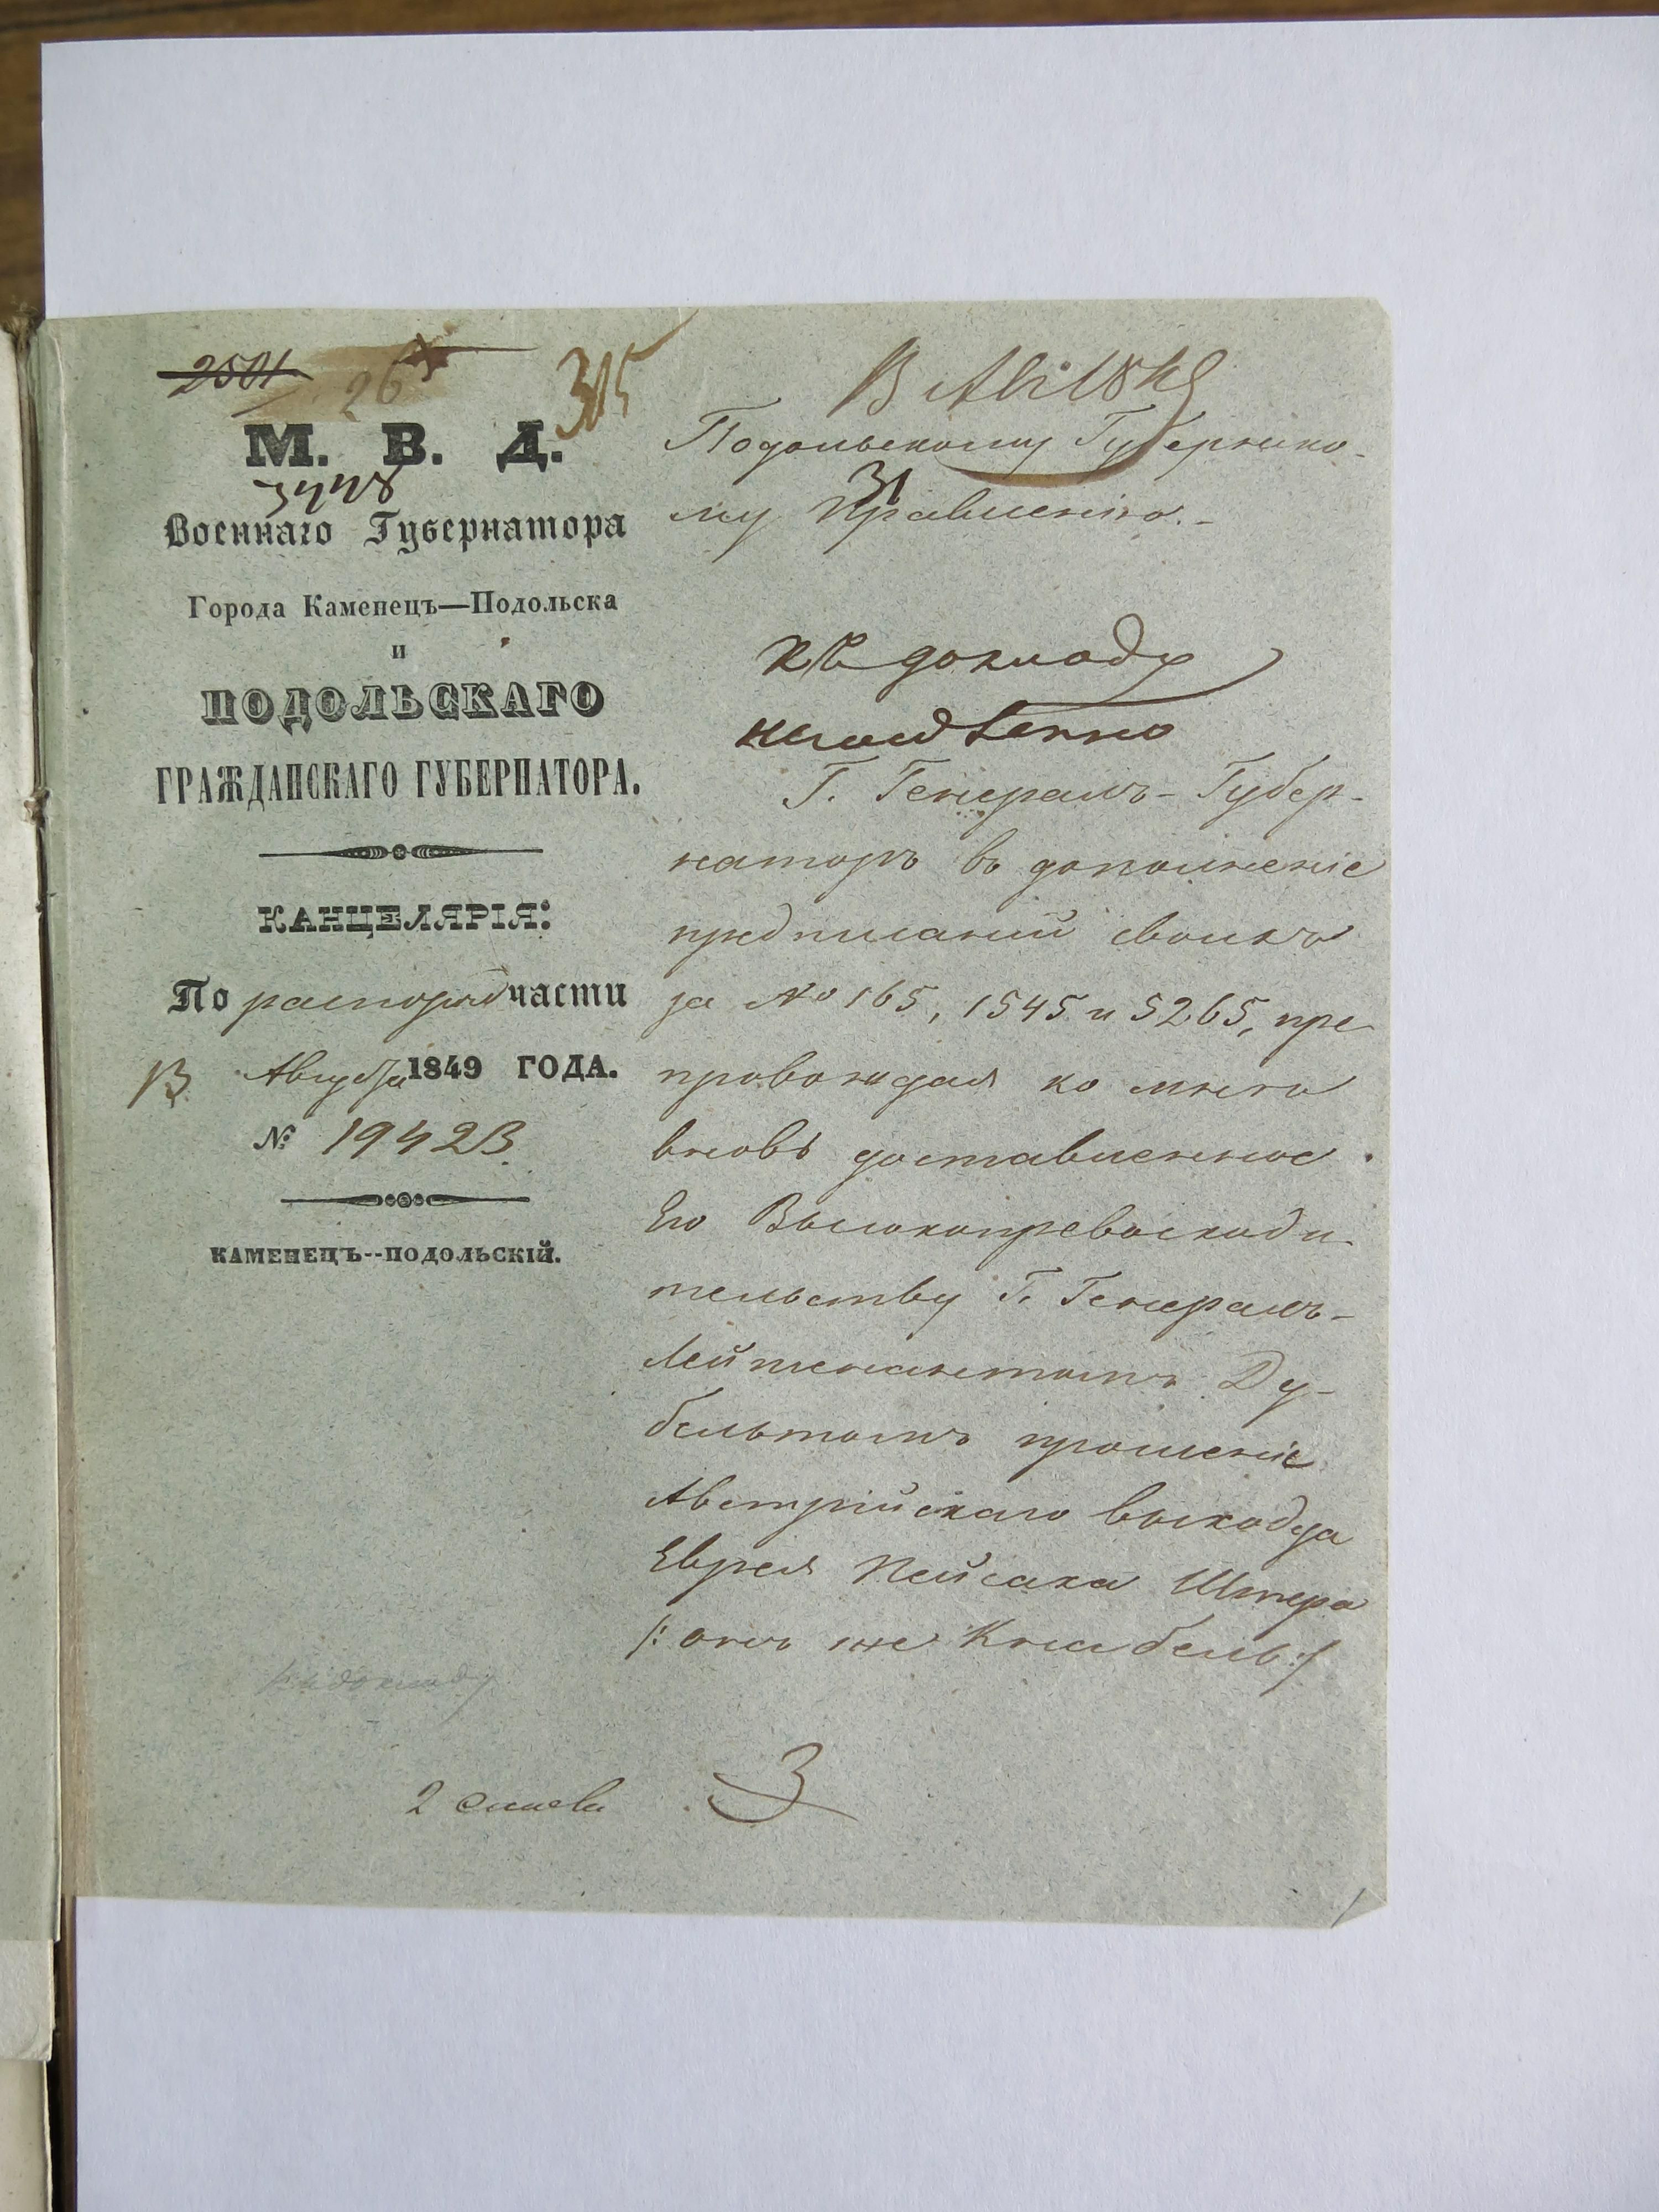 2501
26
315
М. В. Д.
3448
Военнаго Губернатора
Города Каменецъ—Подольска
и
ПОДОЛЬСКАГО
ГРАЖДАНСКАГО ГУБЕРНАТОРА.
КАНЦЕЛЯРІЯ:
По распоряд части
13 Августа 1849 ГОДА.
№ 19423
КАМЕНЕЦЪ--ПОДОЛЬСКІЙ.
Къ докладу
2
Подольскому Губернско-
му Правленію.-
31
Къ докладу
немедленно
Г. Генералъ-Губер-
наторъ въ дополненіе
предписаній своихъ
за № 165, 1545 и 5265, пре
провождая ко мнѣ
вновь доставленное
Его Высокопревосходи-
тельству Г. Генералъ-
Лейтенантомъ Ду-
бельтомъ прошеніе
Австрійскаго выходца
Еврея Пейсаха Штера
/: онъ же Кнабель :/
3